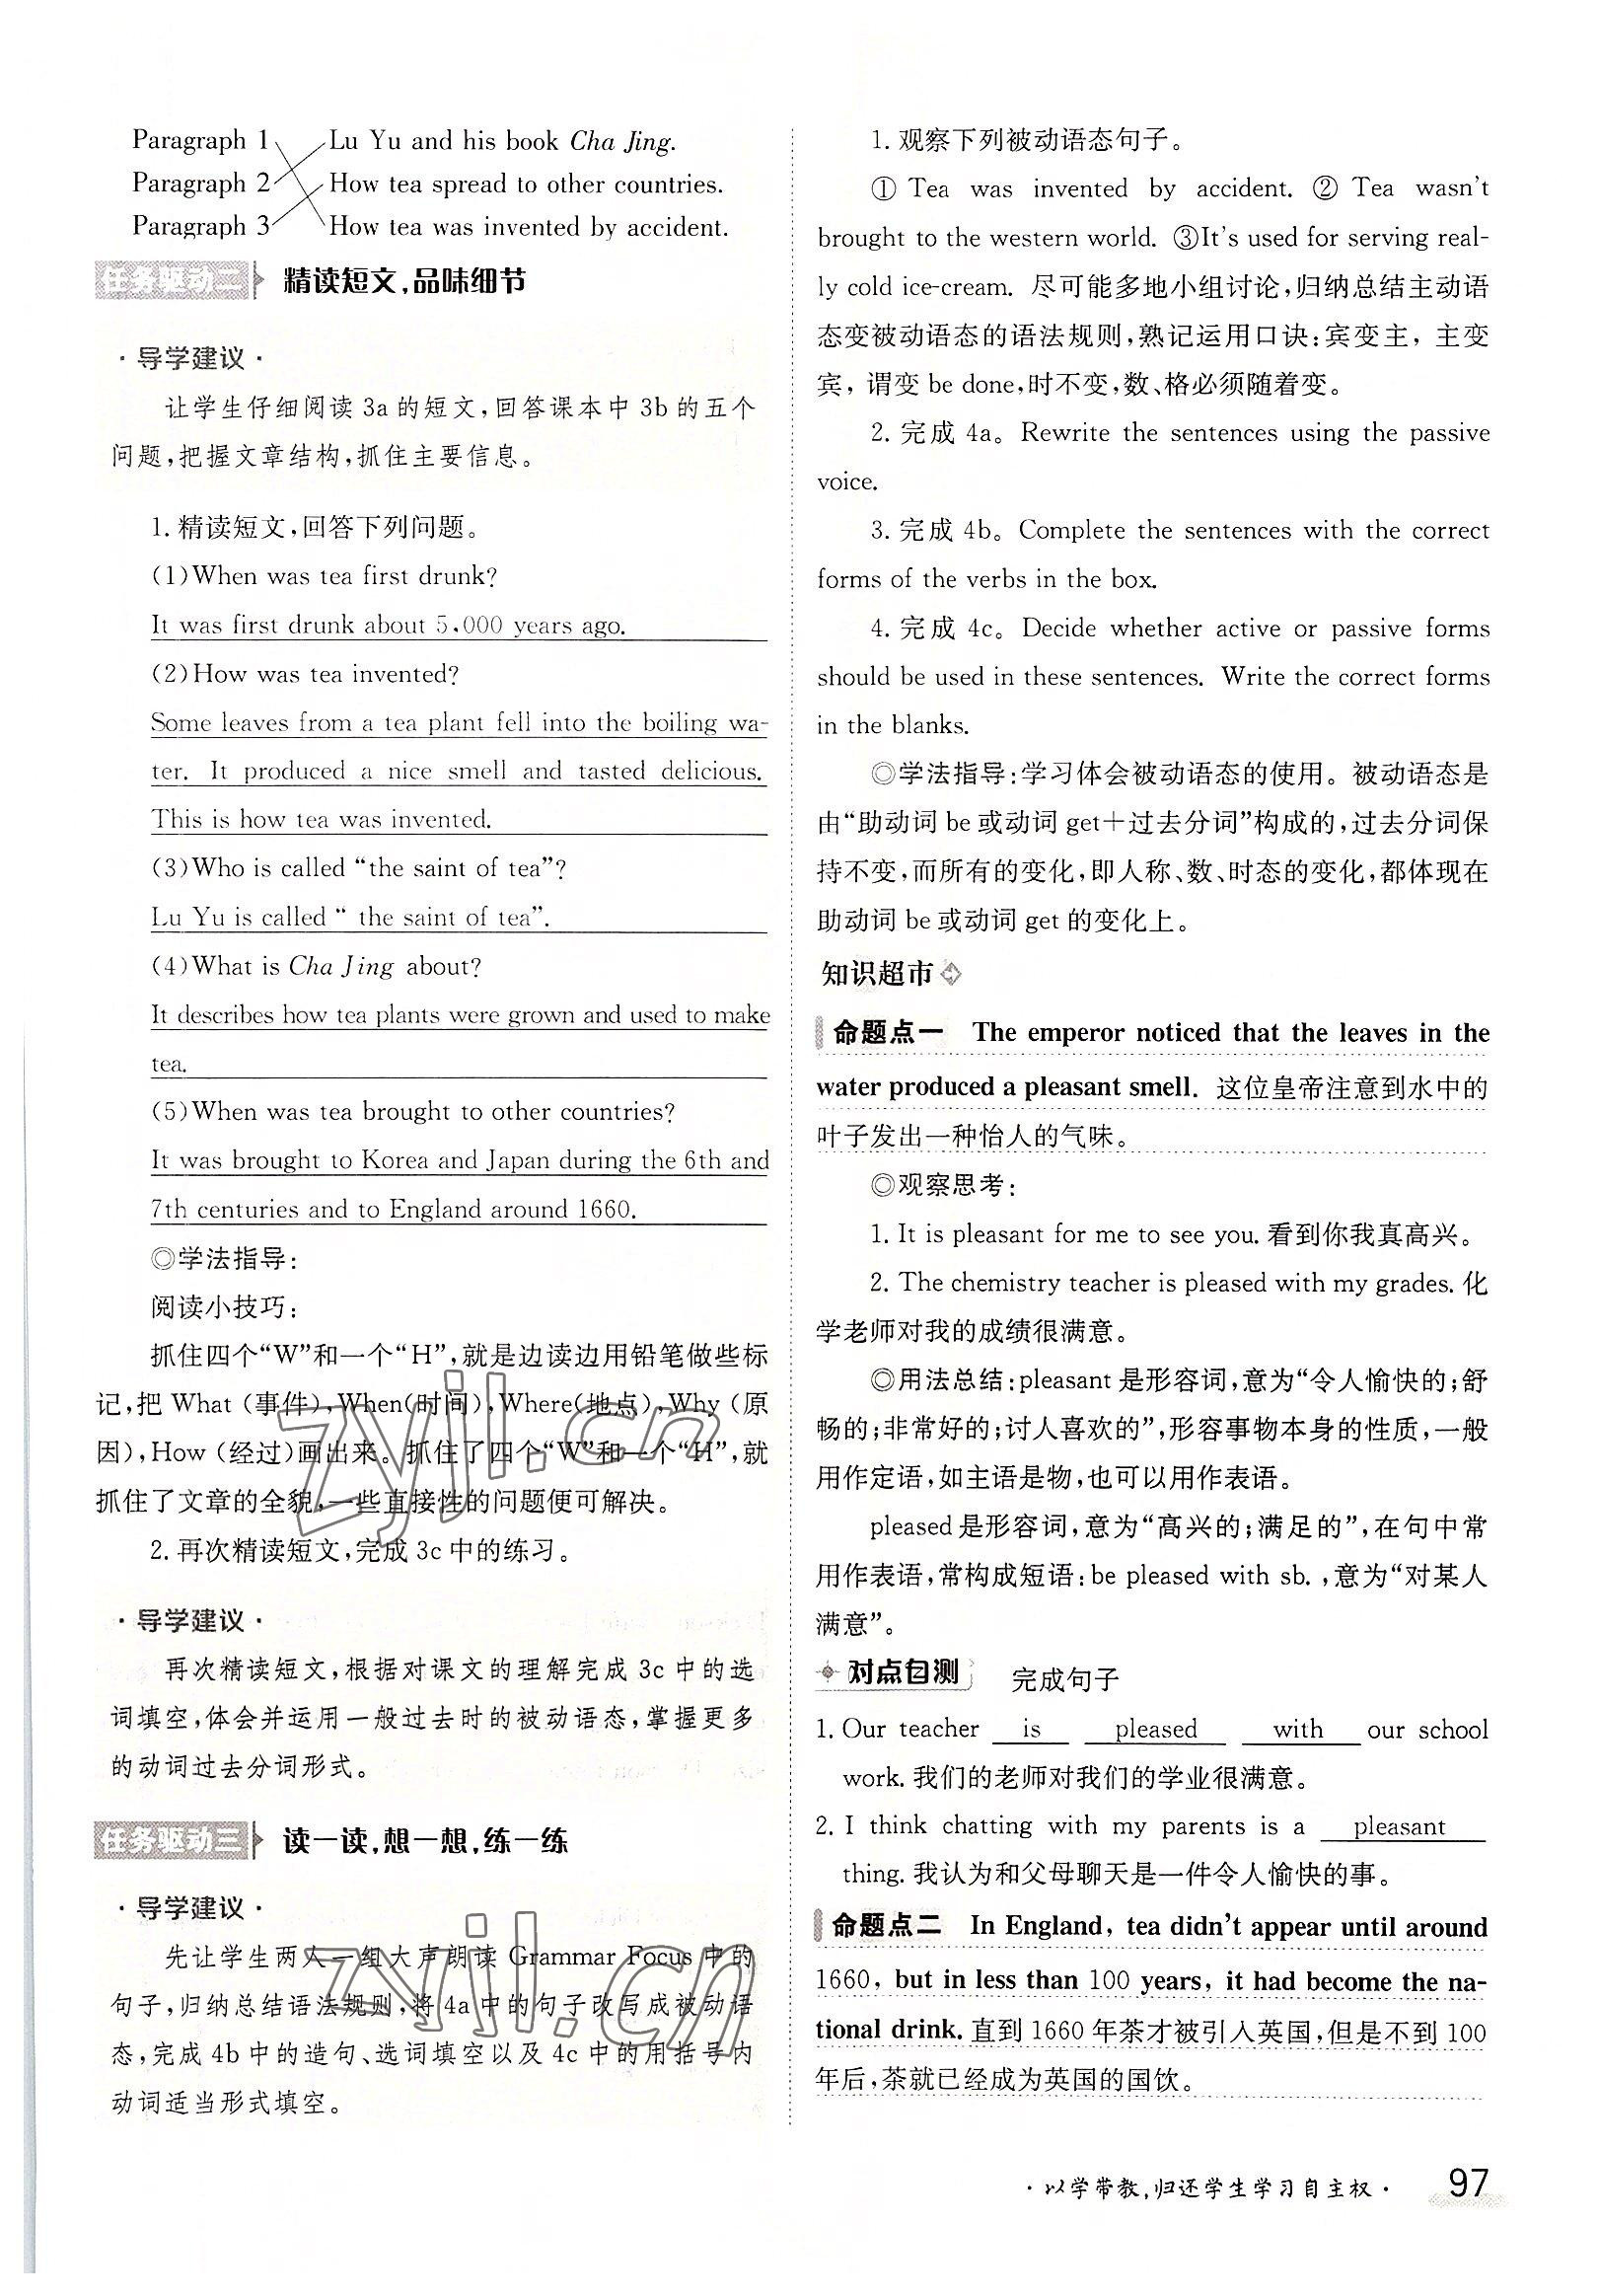 Paragraph 1 Lu Yu and his book Cha Jing.
Paragraph 2 How tea spread to other countries.
Paragraph 3 How tea was invented by accident.
任务驱动二 精读短文,品味细节
·导学建议·
让学生仔细阅读 3a 的短文,回答课本中 3b 的五个
问题,把握文章结构,抓住主要信息。
1. 精读短文,回答下列问题。
(1)When was tea first drunk?
It was first drunk about 5,000 years ago.
(2)How was tea invented?
Some leaves from a tea plant fell into the boiling wa-
ter. It produced a nice smell and tasted delicious.
This is how tea was invented.
(3)Who is called “the saint of tea”?
Lu Yu is called “ the saint of tea”.
(4)What is Cha Jing about?
It describes how tea plants were grown and used to make
tea.
(5)When was tea brought to other countries?
It was brought to Korea and Japan during the 6th and
7th centuries and to England around 1660.
◎学法指导:
阅读小技巧:
抓住四个“W”和一个“H”,就是边读边用铅笔做些标
记,把 What (事件),When(时间),Where(地点),Why (原
因),How (经过)画出来。抓住了四个“W”和一个“H”,就
抓住了文章的全貌,一些直接性的问题便可解决。
2. 再次精读短文,完成 3c 中的练习。
·导学建议·
再次精读短文,根据对课文的理解完成 3c 中的选
词填空,体会并运用一般过去时的被动语态,掌握更多
的动词过去分词形式。
任务驱动三 读一读,想一想,练一练
·导学建议·
先让学生两人一组大声朗读 Grammar Focus 中的
句子,归纳总结语法规则,将 4a 中的句子改写成被动语
态,完成 4b 中的造句、选词填空以及 4c 中的用括号内
动词适当形式填空。
1. 观察下列被动语态句子。
① Tea was invented by accident. ② Tea wasn't
brought to the western world. ③It's used for serving real-
ly cold ice-cream. 尽可能多地小组讨论,归纳总结主动语
态变被动语态的语法规则,熟记运用口诀:宾变主,主变
宾,谓变 be done,时不变,数、格必须随着变。
2. 完成 4a。Rewrite the sentences using the passive
voice.
3. 完成 4b。Complete the sentences with the correct
forms of the verbs in the box.
4. 完成 4c。Decide whether active or passive forms
should be used in these sentences. Write the correct forms
in the blanks.
◎学法指导:学习体会被动语态的使用。被动语态是
由“助动词 be 或动词 get+过去分词”构成的,过去分词保
持不变,而所有的变化,即人称、数、时态的变化,都体现在
助动词 be 或动词 get 的变化上。
知识超市
命题点一 The emperor noticed that the leaves in the
water produced a pleasant smell. 这位皇帝注意到水中的
叶子发出一种怡人的气味。
◎观察思考:
1. It is pleasant for me to see you. 看到你我真高兴。
2. The chemistry teacher is pleased with my grades. 化
学老师对我的成绩很满意。
◎用法总结:pleasant 是形容词,意为“令人愉快的;舒
畅的;非常好的;讨人喜欢的”,形容事物本身的性质,一般
用作定语,如主语是物,也可以用作表语。
pleased 是形容词,意为“高兴的;满足的”,在句中常
用作表语,常构成短语:be pleased with sb.,意为“对某人
满意”。
对点自测 完成句子
1. Our teacher is pleased with our school
work. 我们的老师对我们的学业很满意。
2. I think chatting with my parents is a pleasant
thing. 我认为和父母聊天是一件令人愉快的事。
命题点二 In England, tea didn't appear until around
1660, but in less than 100 years, it had become the na-
tional drink. 直到 1660 年茶才被引入英国,但是不到 100
年后,茶就已经成为英国的国饮。
·以学带教,归还学生学习自主权· 97
zyjl.cn
zyjl.cn